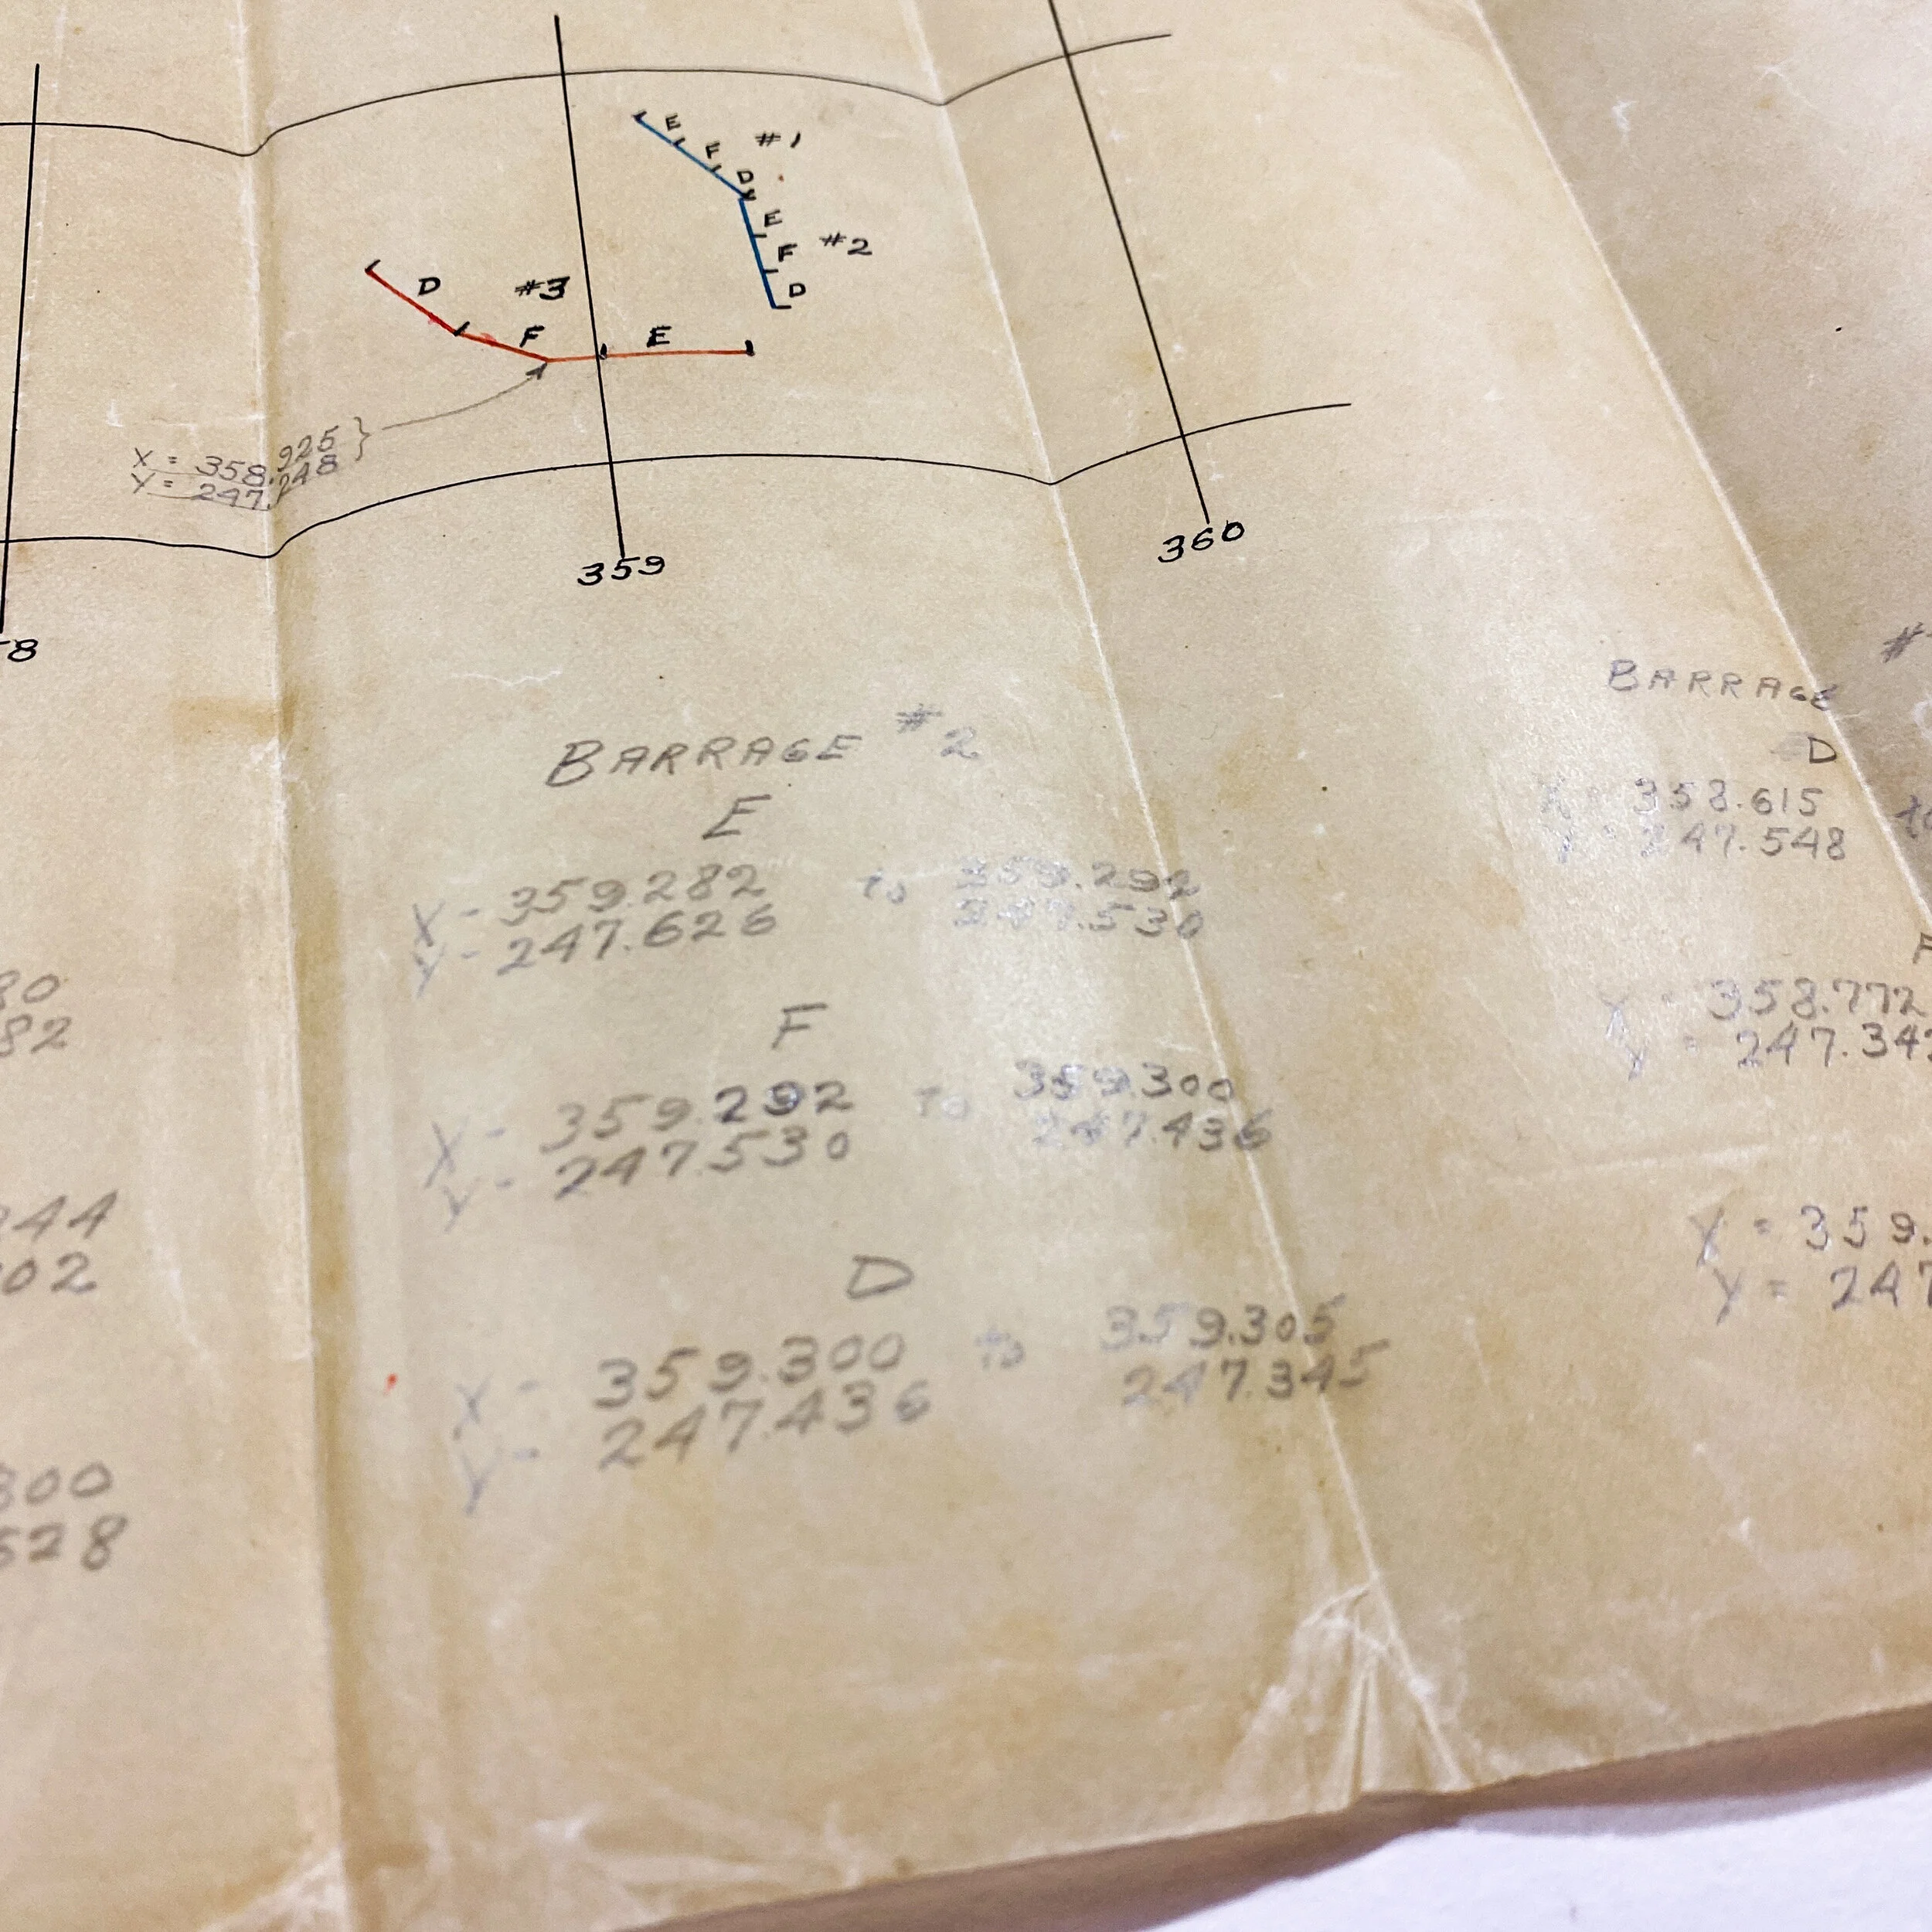 E
F
D
#1
E
F
D
#2
D
#3
F
E
X = 358.925
Y = 247.248
359
360
8
BARRAGE #2
E
X - 359.282 to 359.292
Y - 247.626 247.530
F
X - 359.292 to 359.300
Y - 247.530 247.436
D
X - 359.300 to 359.305
Y - 247.436 247.345
80
82
44
02
300
528
BARRAGE #
D
X 358.615 to
Y 247.548
F
X = 358.772
Y = 247.34
X = 359.
Y = 247